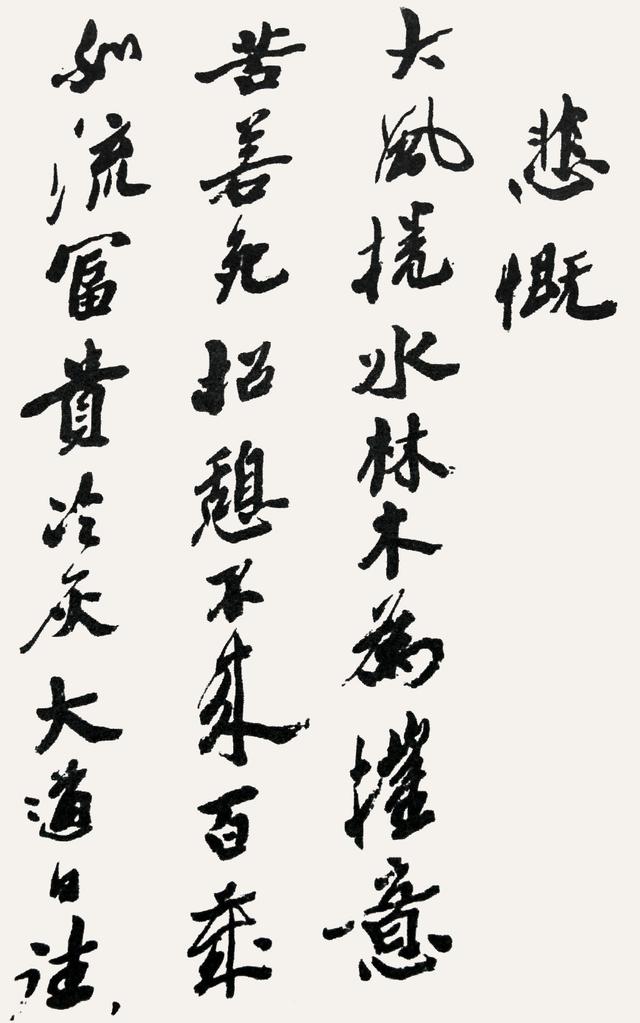 悲慨
大風捲水林木為摧意
苦若死招憩不來百歲
如流富貴冷灰大道日往